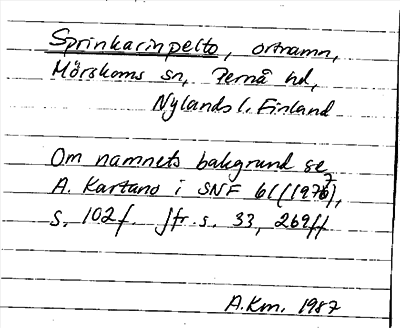 Sprinkarinpelto, ortnamn,
Mörskoms sn, Pernå hd,
Nylands l. Finland
Om namnets bakgrund se
A. Kartano i SNF 61 (1978),
s. 102 f. Jfr. s. 33, 269 ff
A.Km. 1987